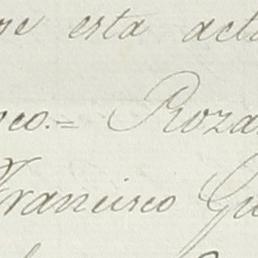 esta acta
Roza
Francisco Gu